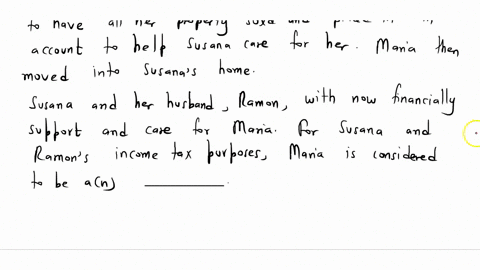 to have all her property sold and
account to help Susana care for her. Maria then
moved into Susana's home.
Susana and her husband, Ramon, with now financially
support and care for Maria. For Susana and
Ramon's income tax purposes, Maria is considered
to be a(n) ________.